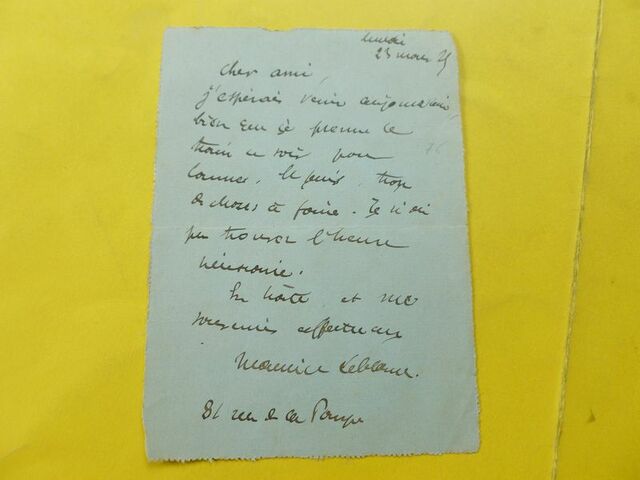 lundi
23 mars 25
Cher ami,
j'espérais venir aujourd'hui,
bien que je prenne le
train ce soir pour
Cannes. Et puis, trop
de choses à faire. Je n'ai
pu trouver l'heure
nécessaire.
En hâte, et mes
souvenirs affectueux
Maurice Leblanc.
81 rue de la Pompe